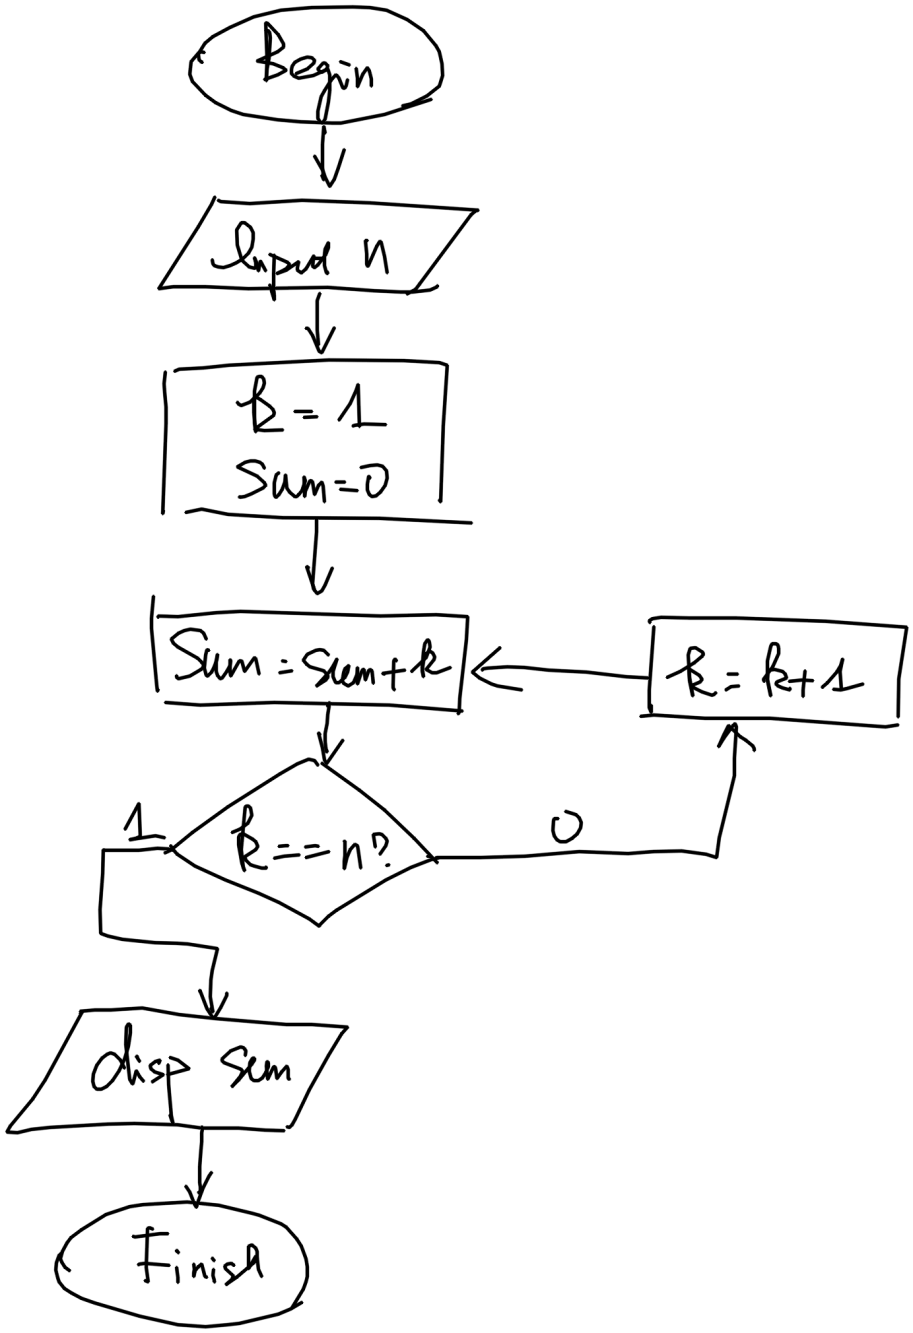 Begin
Input n
k = 1
Sum = 0
Sum = sum + k
k = k + 1
k == n?
1
0
disp sum
Finish